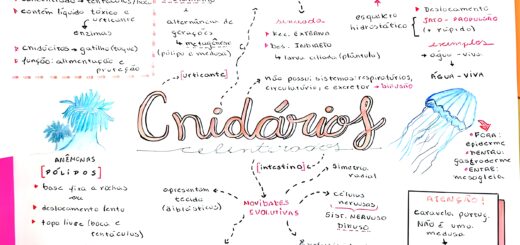 contém líquido tóxico e
urticante
enzimas
cnidócitos → gatilho (toque)
função: alimentação e
proteção
alternância de
gerações
↳ metagênese
(pólipo e medusa)
[urticante]
sexuada
Fec. EXTERNA
Des. INDIRETO
↳ larva ciliada (plânula)
esqueleto
hidrostático
Deslocamento
JATO-PROPULSÃO
(+ rápido)
exemplos
água-viva
ÁGUA-VIVA
não possui sistemas respiratórios,
circulatório, e excretor → DIFUSÃO
Cnidários
celenterados
ANÊMONAS
[PÓLIPOS]
base fixa a rochas
ou
deslocamento lento
topo livre (boca e
tentáculos)
apresentam
tecido
(diblásticos)
[intestino]
simetria
radial
NOVIDADES
EVOLUTIVAS
células
nervosas
SIST. NERVOSO
DIFUSO
FORA:
epiderme
DENTRO:
gastroderme
ENTRE:
mesogleia
ATENÇÃO!
caravela portug.
NÃO é uma
medusa